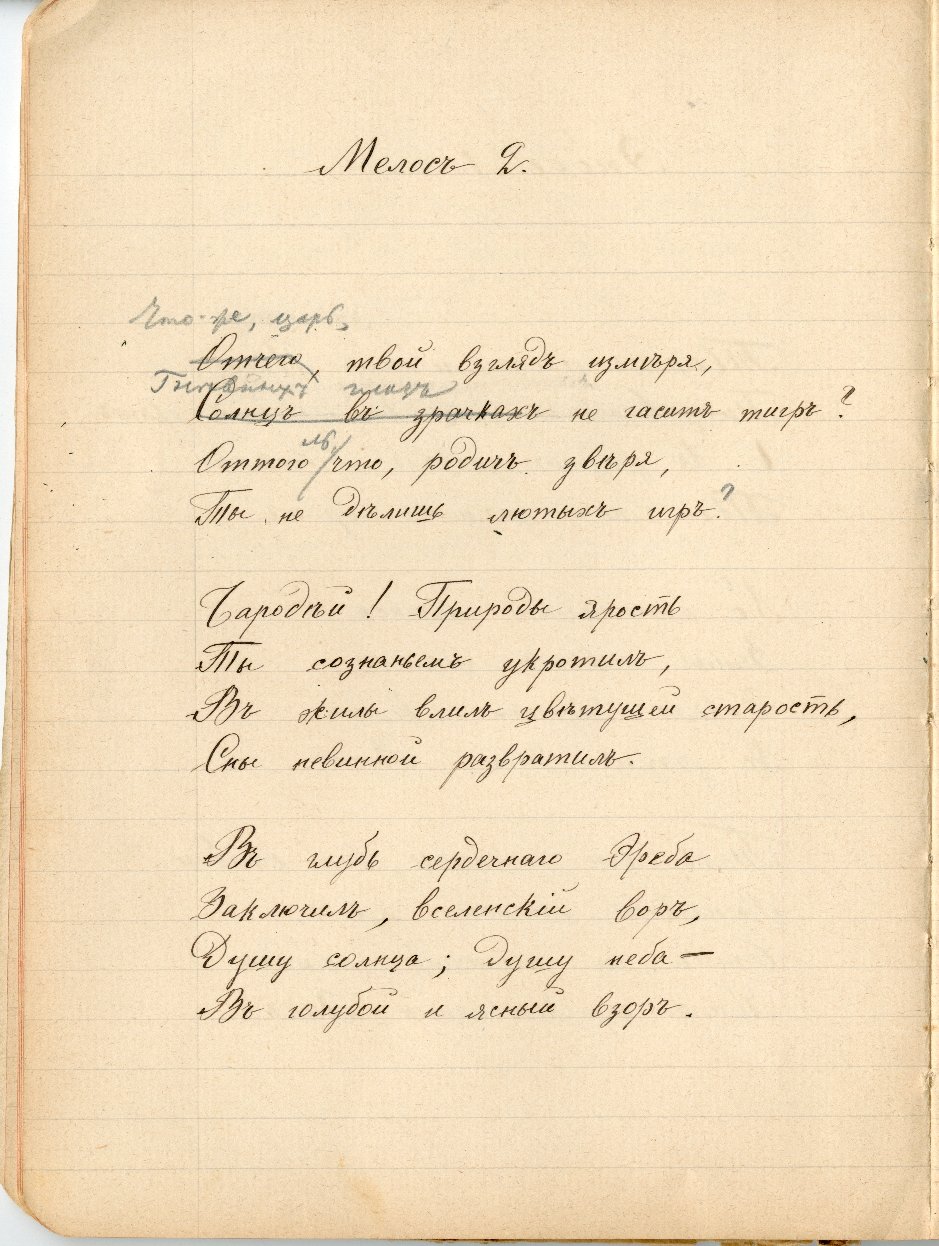 Мелосъ 2.
Что-же, царь,
Отчего, твой взглядъ измѣря,
Гнѣвныхъ глазъ
Солнцъ въ зрачкахъ не гаситъ тигръ?
ль
Оттого что, родичъ звѣря,
Ты не дѣлишь лютыхъ игръ?
Чародѣй! Природы ярость
Ты сознаньемъ укротилъ,
Въ жилы влилъ цвѣтущей старость,
Сны невинной развратилъ.
Въ глубь сердечнаго Эреба
Заключилъ, вселенскій воръ,
Душу солнца; душу неба —
Въ голубой и ясный взоръ.